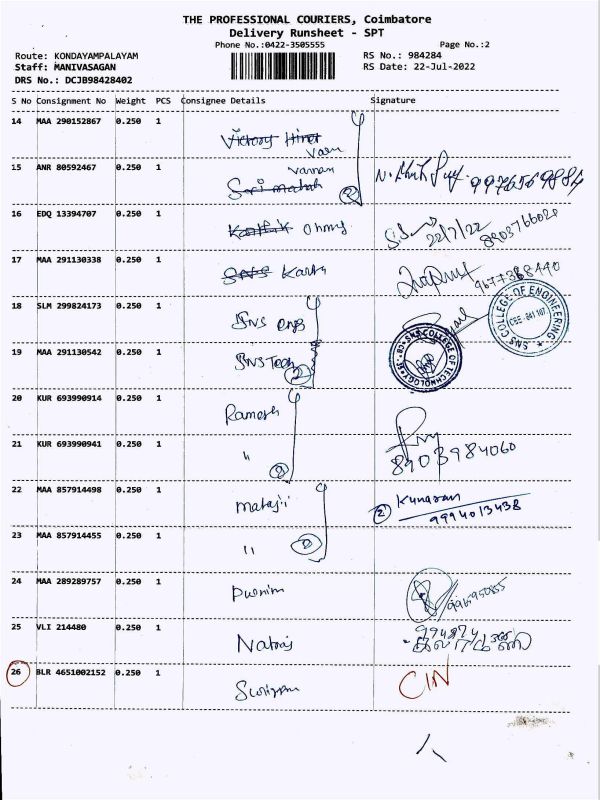 THE PROFESSIONAL COURIERS, Coimbatore
Delivery Runsheet - SPT
Phone No.:0422-3505555
Page No.:2
Route: KONDAYAMPALAYAM
RS No.: 984284
Staff: MANIVASAGAN
RS Date: 22-Jul-2022
DRS No.: DCJB98428402
S No Consignment No Weight PCS Consignee Details Signature
14 MAA 290152867 0.250 1
Victory
15 ANR 80592467 0.250 1
vaman
2
16 EDQ 13394707 0.250 1
Karthik
22/7/22
17 MAA 291130338 0.250 1
18 SLM 299824173 0.250 1 SNS
SNS COLLEGE OF ENGINEERING
CBE-641 107
19 MAA 291130542 0.250 1 SNS Tech
2
SNS COLLEGE OF TECHNOLOGY
20 KUR 693990914 0.250 1 Ramesh
21 KUR 693990941 0.250 1 "
2
8903984060
22 MAA 857914498 0.250 1
2
9994013438
23 MAA 857914455 0.250 1 "
2
24 MAA 289289757 0.250 1
25 VLI 214480 0.250 1 Natraj
26 BLR 4651002152 0.250 1
CIN